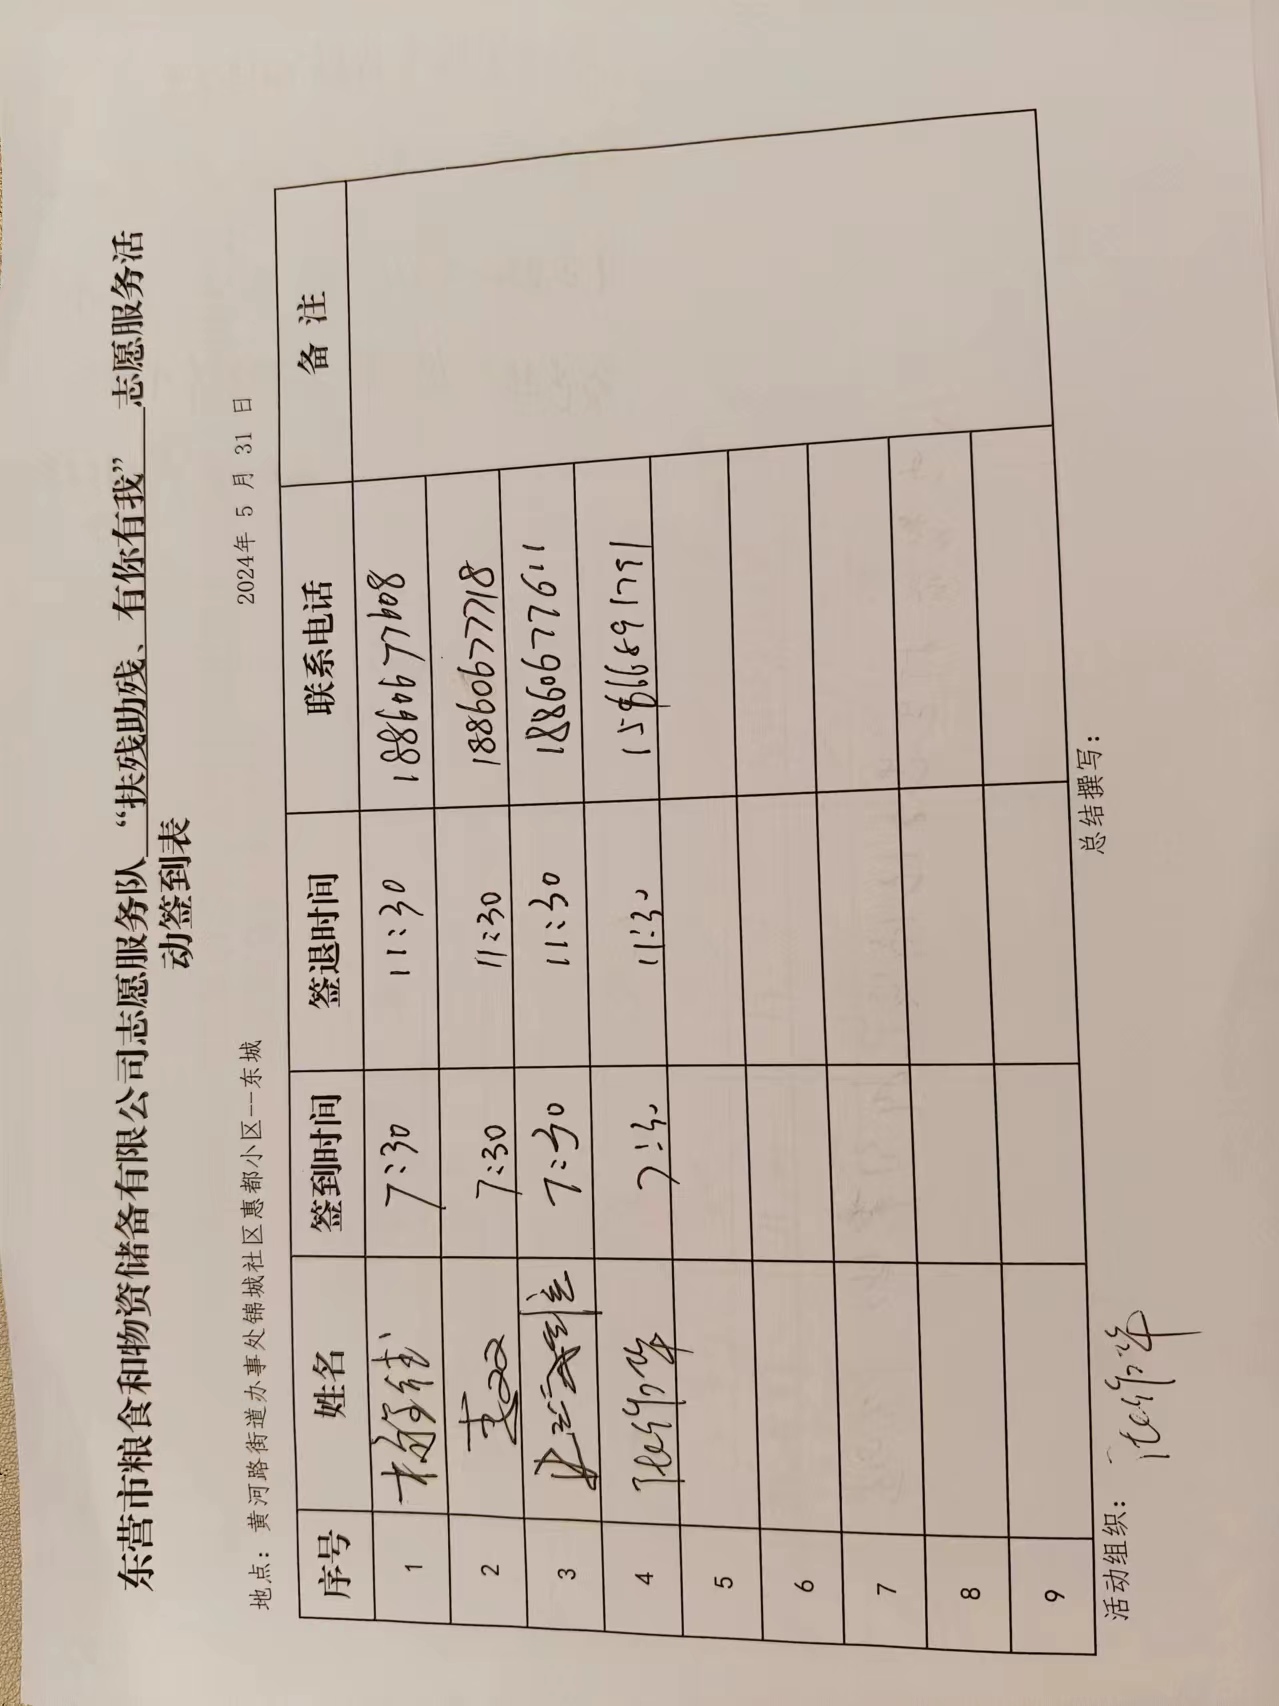 东营市粮食和物资储备有限公司志愿服务队 “扶残助残、有你有我” 志愿服务活
动签到表
地点：黄河路街道办事处锦城社区惠都小区--东城 2024年 5 月 31 日
序号 姓名 签到时间 签退时间 联系电话 备 注
1 7:30 11:30 18860677608
2 7:30 11:30 18860677718
3 7:30 11:30 18860677611
4 7:30 11:30 15866891791
5
6
7
8
9
活动组织： 总结撰写：